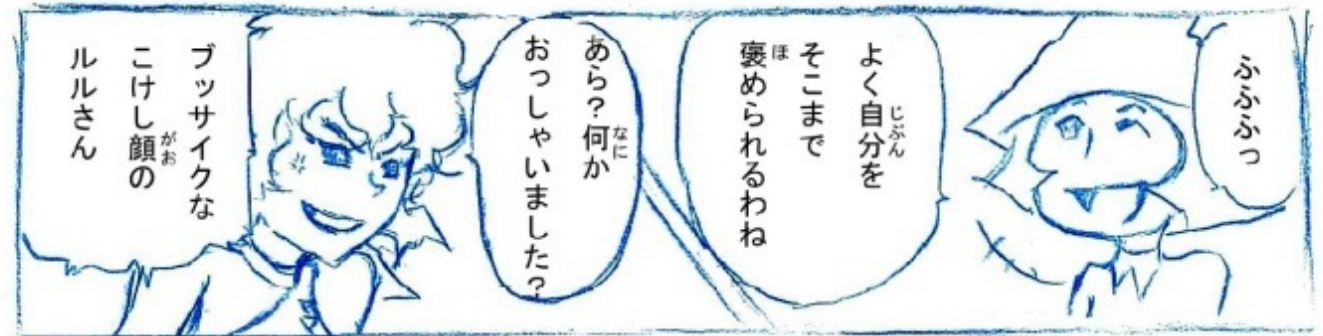 ふふふっ
よく自分を
そこまで
褒められるわね
あら？何か
おっしゃいました？
ブッサイクな
こけし顔の
ルルさん